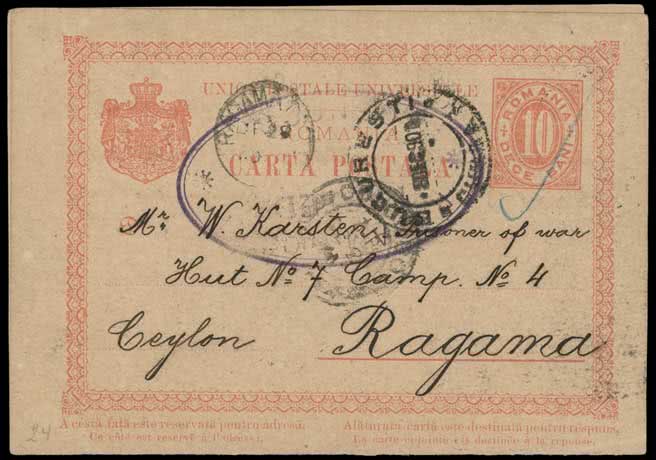 UNIUNEA POSTALE UNIVERSELLE
ROMANIA
CARTA POSTALA
ROMANIA
10
DECE BANI
RAGAMA
BUCURESTI
Mr. W. Karsten, Prisoner of war
Hut No 7 Camp. No 4
Ceylon Ragama
A cestă fată este reservată pentru adresă.
Ce côté est reservé à l'adresse.
Alăturata cartă este destinată pentru respuns.
La carte conjointe est destinée à la réponse.
24